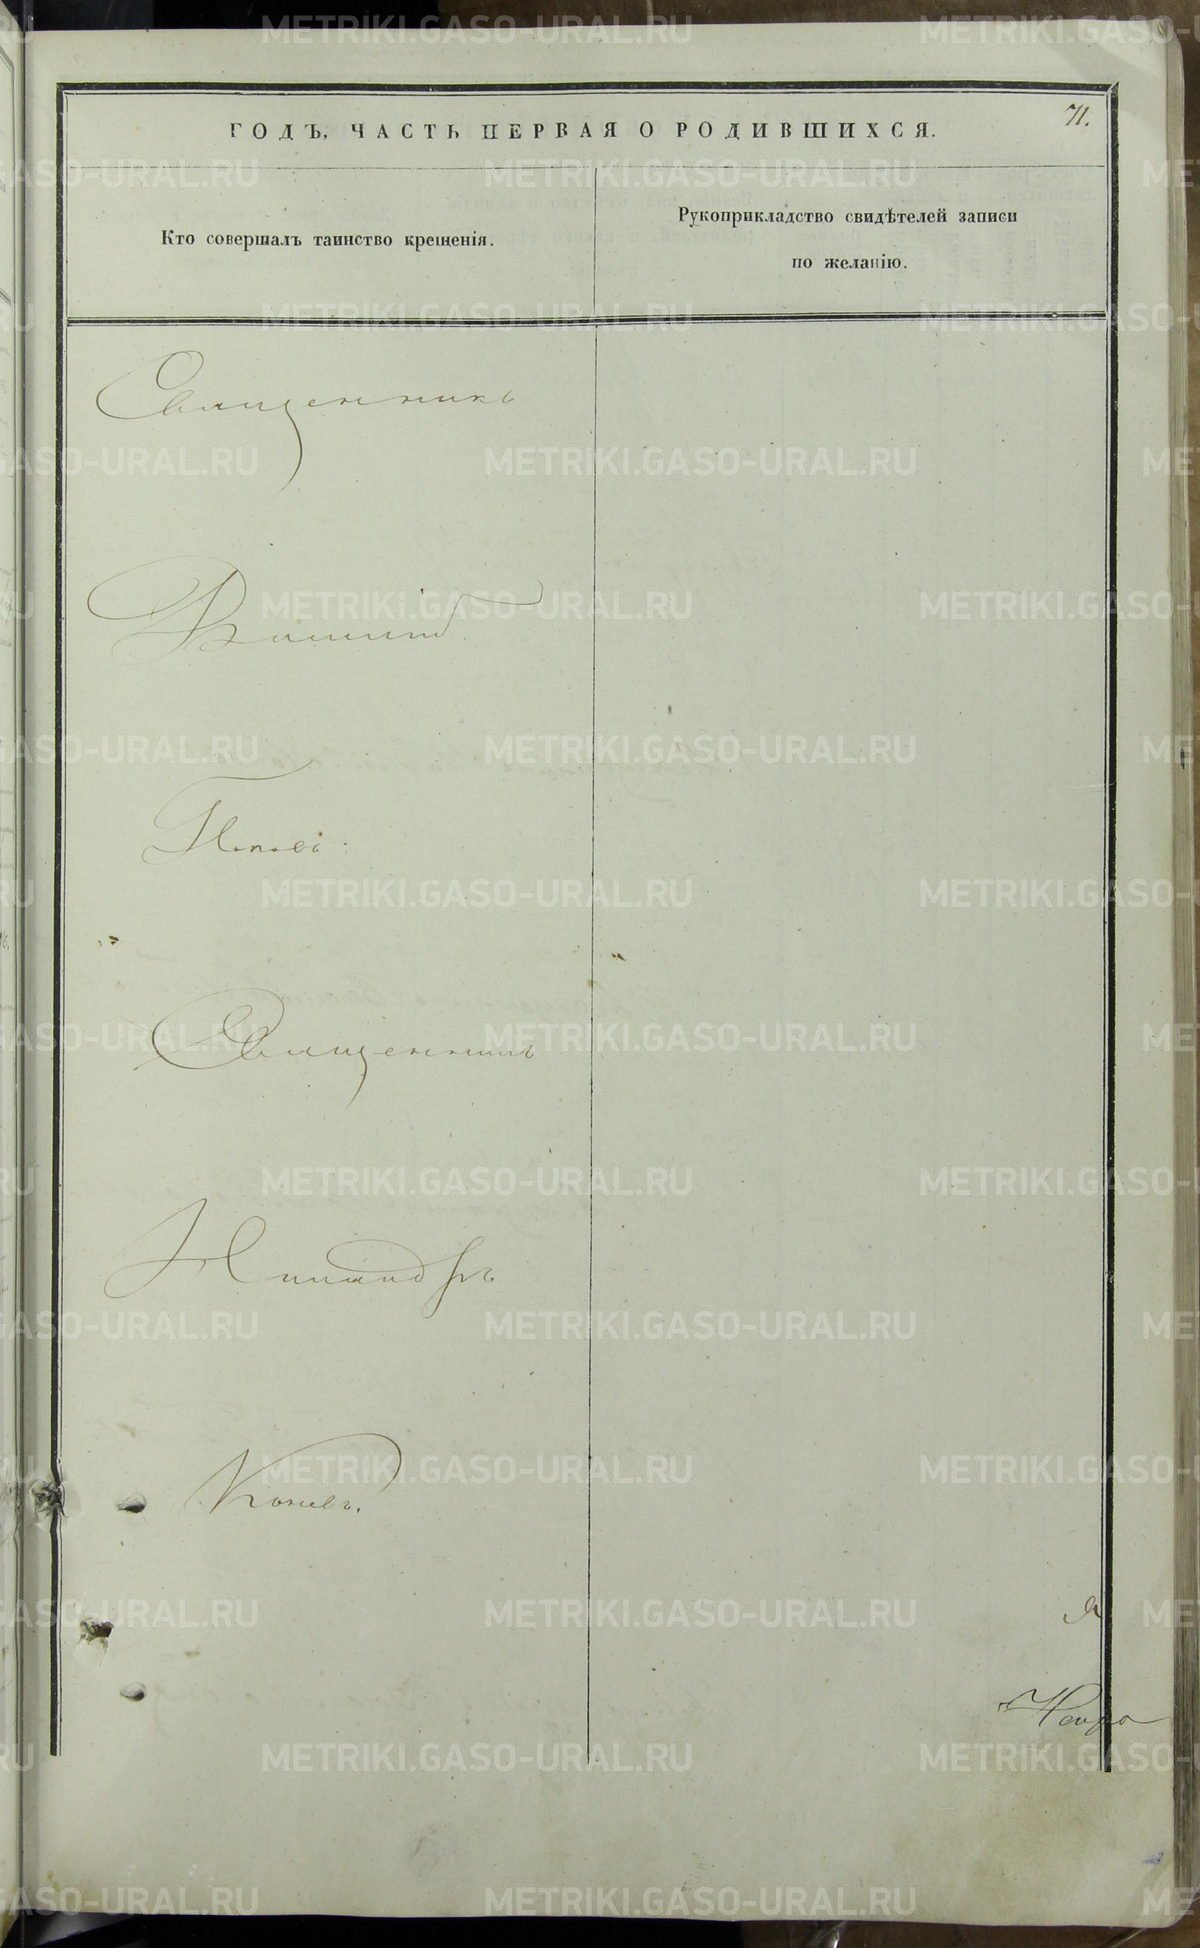 71.
ГОДЪ, ЧАСТЬ ПЕРВАЯ О РОДИВШИХСЯ.
Кто совершалъ таинство крещенія.
Рукоприкладство свидѣтелей записи
по желанію.
Священникъ
Поповъ.
Священникъ
Никандръ
Коневъ.
METRIKI.GASO-URAL.RU